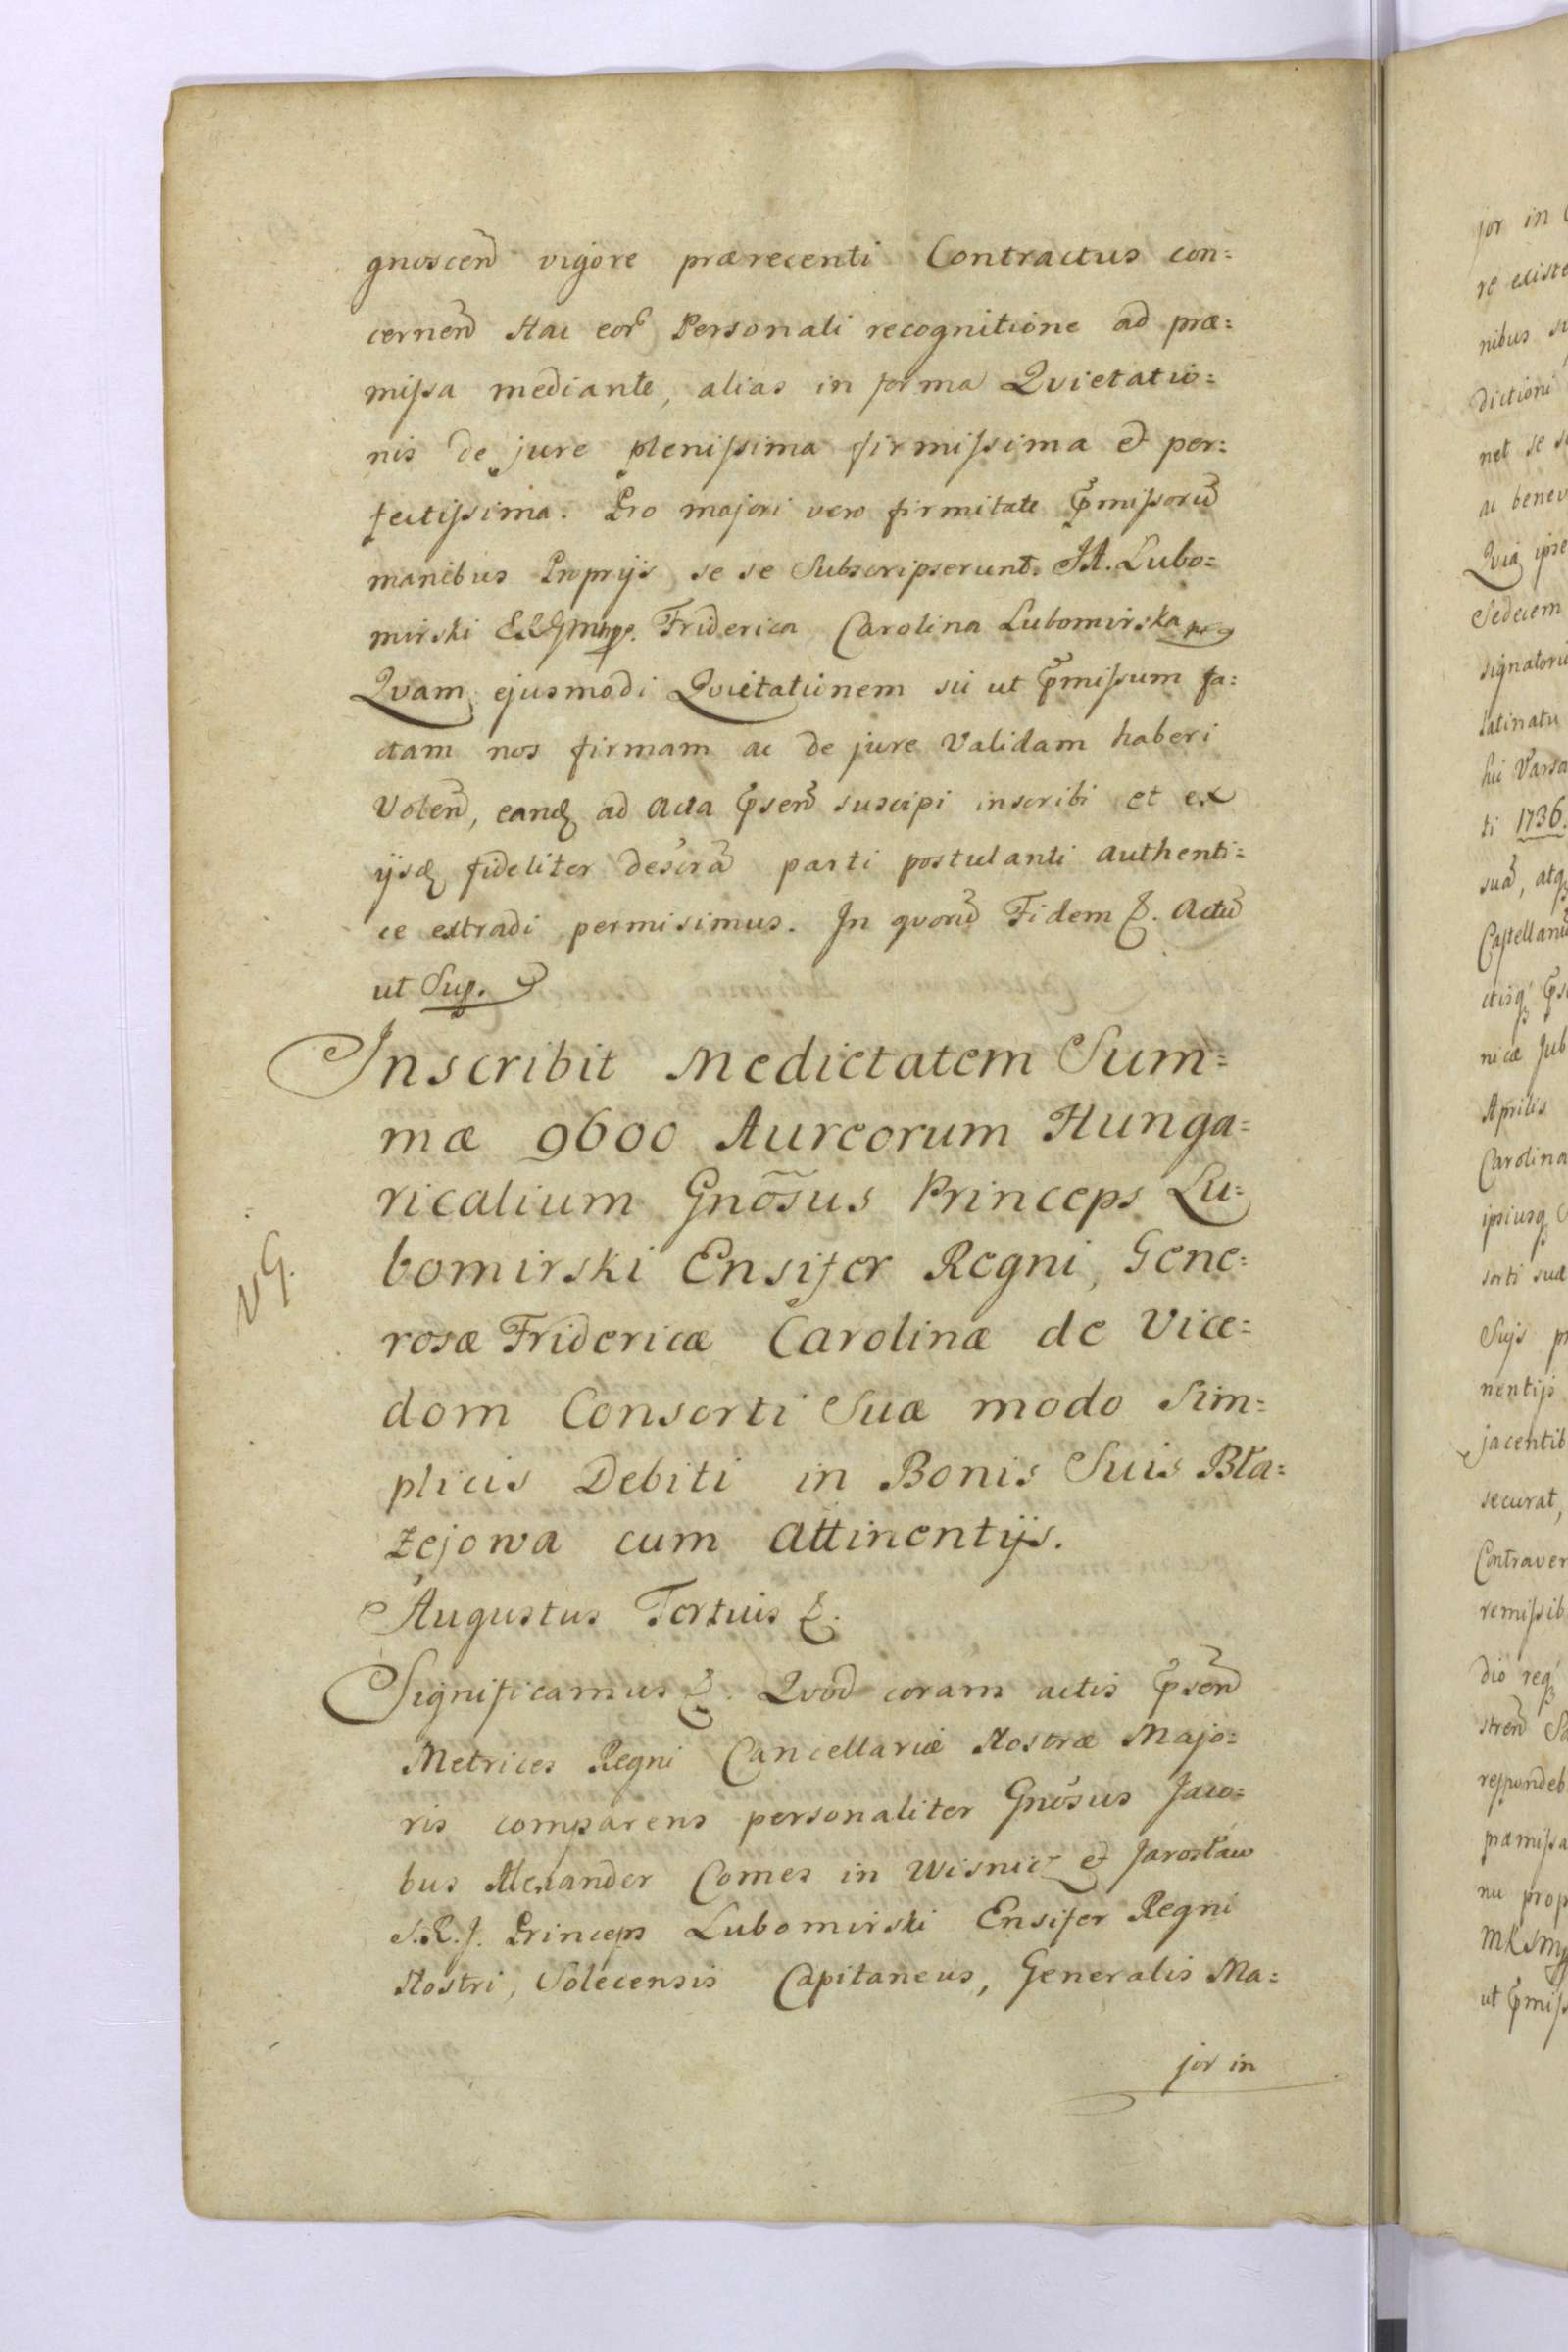 gnoscend vigore prærecenti Contractus con=
cernend Hac eor Personali recognitione ad præ=
missa mediante, alias in forma Qvietatio=
nis de jure plenissima firmissima et per=
fectissima. Pro majori vero firmitate Pmissorum
manibus Proprijs se se Subscripserunt. JA. Lubo=
mirski Friderica Carolina Lubomirska mp
Qvam ejusmodi Qvietationem sii ut Pmissum fa=
ctam nos firmam ac de jure Validam haberi
Volend, eandq ad Acta Psend suscipi inscribi et ex
ijsdq fideliter descrã parti postulanti authenti=
ce extradi permisimus. In qvorũ Fidem &. Actũ
ut Sup.
Inscribit Medietatem Sum=
mæ 9600 Aureorum Hunga=
ricalium Gnõsus Princeps Lu=
bomirski Ensifer Regni, Gene=
rosæ Fridericæ Carolinæ de Vice=
dom Consorti Suæ modo Sim=
plicis Debiti in Bonis Suis Bła=
żejowa cum Attinentijs.
VG.
Augustus Tertius &.
Significamus &. Qvod coram actis Psend
Metrices Regni Cancellariæ Nostræ Majo=
ris comparens personaliter Gnõsus Jaco=
bus Alexander Comes in Wisnicz et Jarosław
S.R.J. Princeps Lubomirski Ensifer Regni
Nostri, Solecensis Capitaneus, Generalis Ma=
jor in
jor in
re existe
nibus
dictioni
net se
ac benev
Qvia ipse
Sedecem
signatoru
latinatu
hic Varsa
ti 1736.
suã, atq
Castellanũ
nicæ Jub
Aprilis
Carolina
ipsiusq
sorti suæ
Suis
nentijs
jacentib
securat,
Contraver
remissib
dio req
respondeb
præmissa
nu prop
ut Pmiss